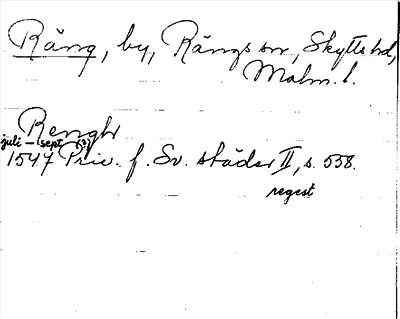 Räng, by, Rängs sn, Skytts hd,
Malm. l.
Rengh
juli - sept (?)
1547 Priv. f. Sv. städer II, s. 558.
regest